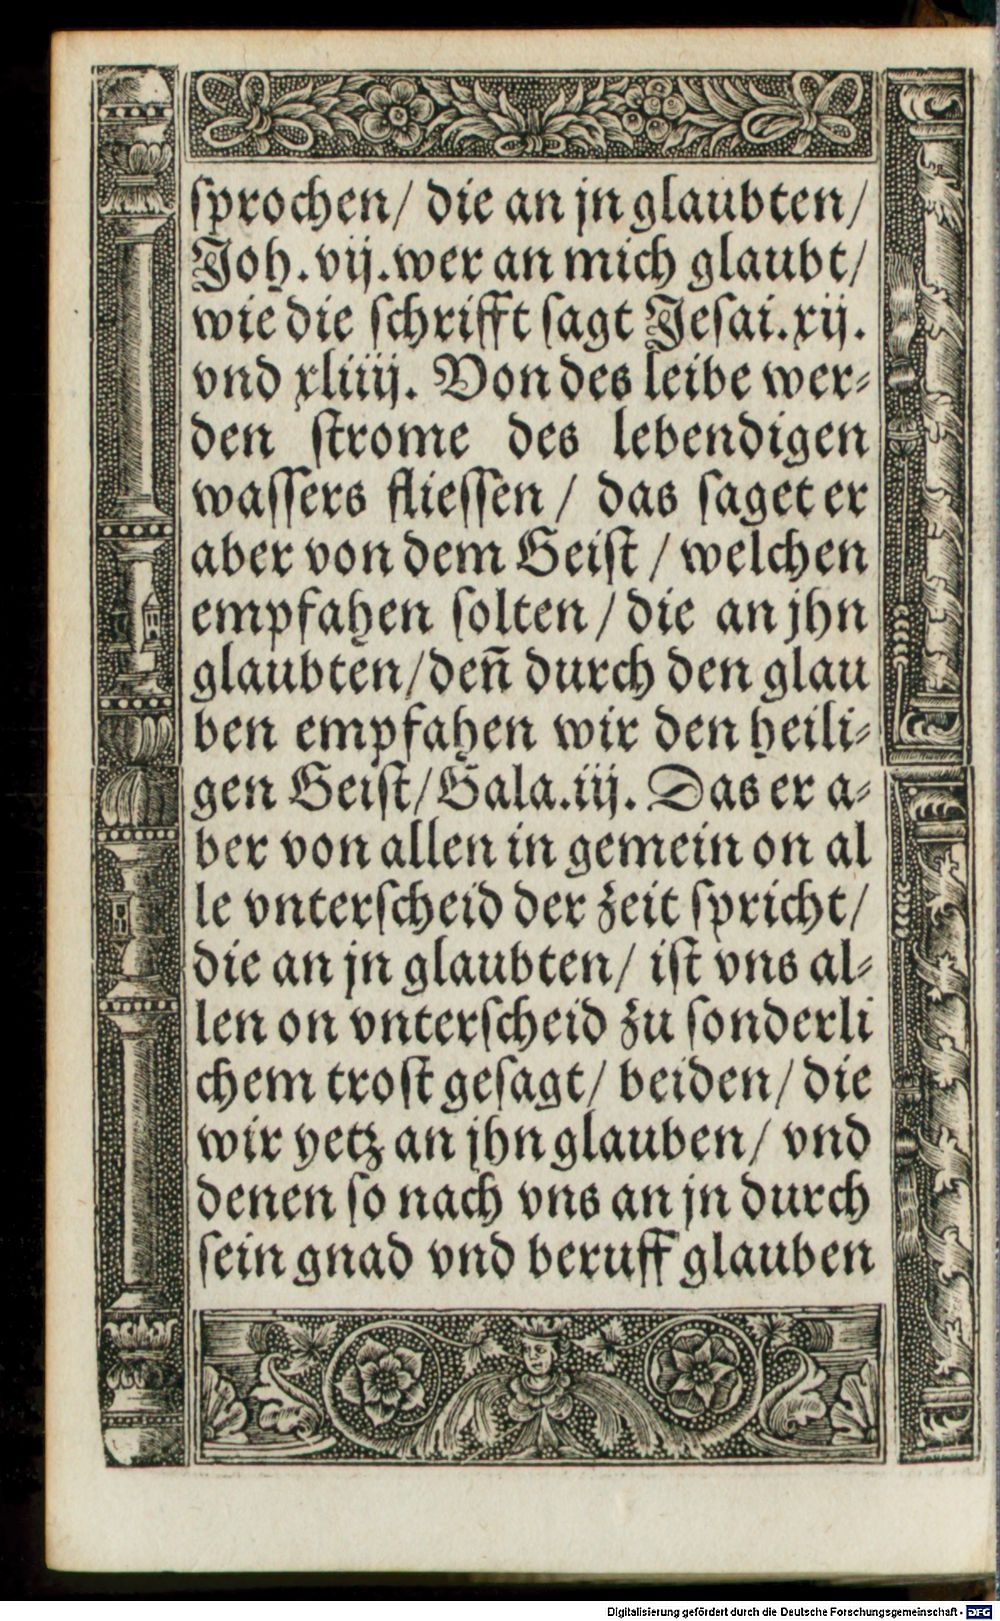 sprochen/ die an jn glaubten/
Joh. vij. wer an mich glaubt/
wie die schrifft sagt Jesai. xij.
vnd xliiij. Von des leibe wer⸗
den strome des lebendigen
wassers fliessen/ das saget er
aber von dem Geist/ welchen
empfahen solten/ die an jhn
glaubten/ deñ durch den glau
ben empfahen wir den heili⸗
gen Geist/ Gala. iij. Das er a⸗
ber von allen in gemein on al
le vnterscheid der zeit spricht/
die an jn glaubten/ ist vns al⸗
len on vnterscheid zu sonderli
chem trost gesagt/ beiden/ die
wir yetz an jhn glauben/ vnd
denen so nach vns an jn durch
sein gnad vnd beruff glauben
Digitalisierung gefördert durch die Deutsche Forschungsgemeinschaft - DFG